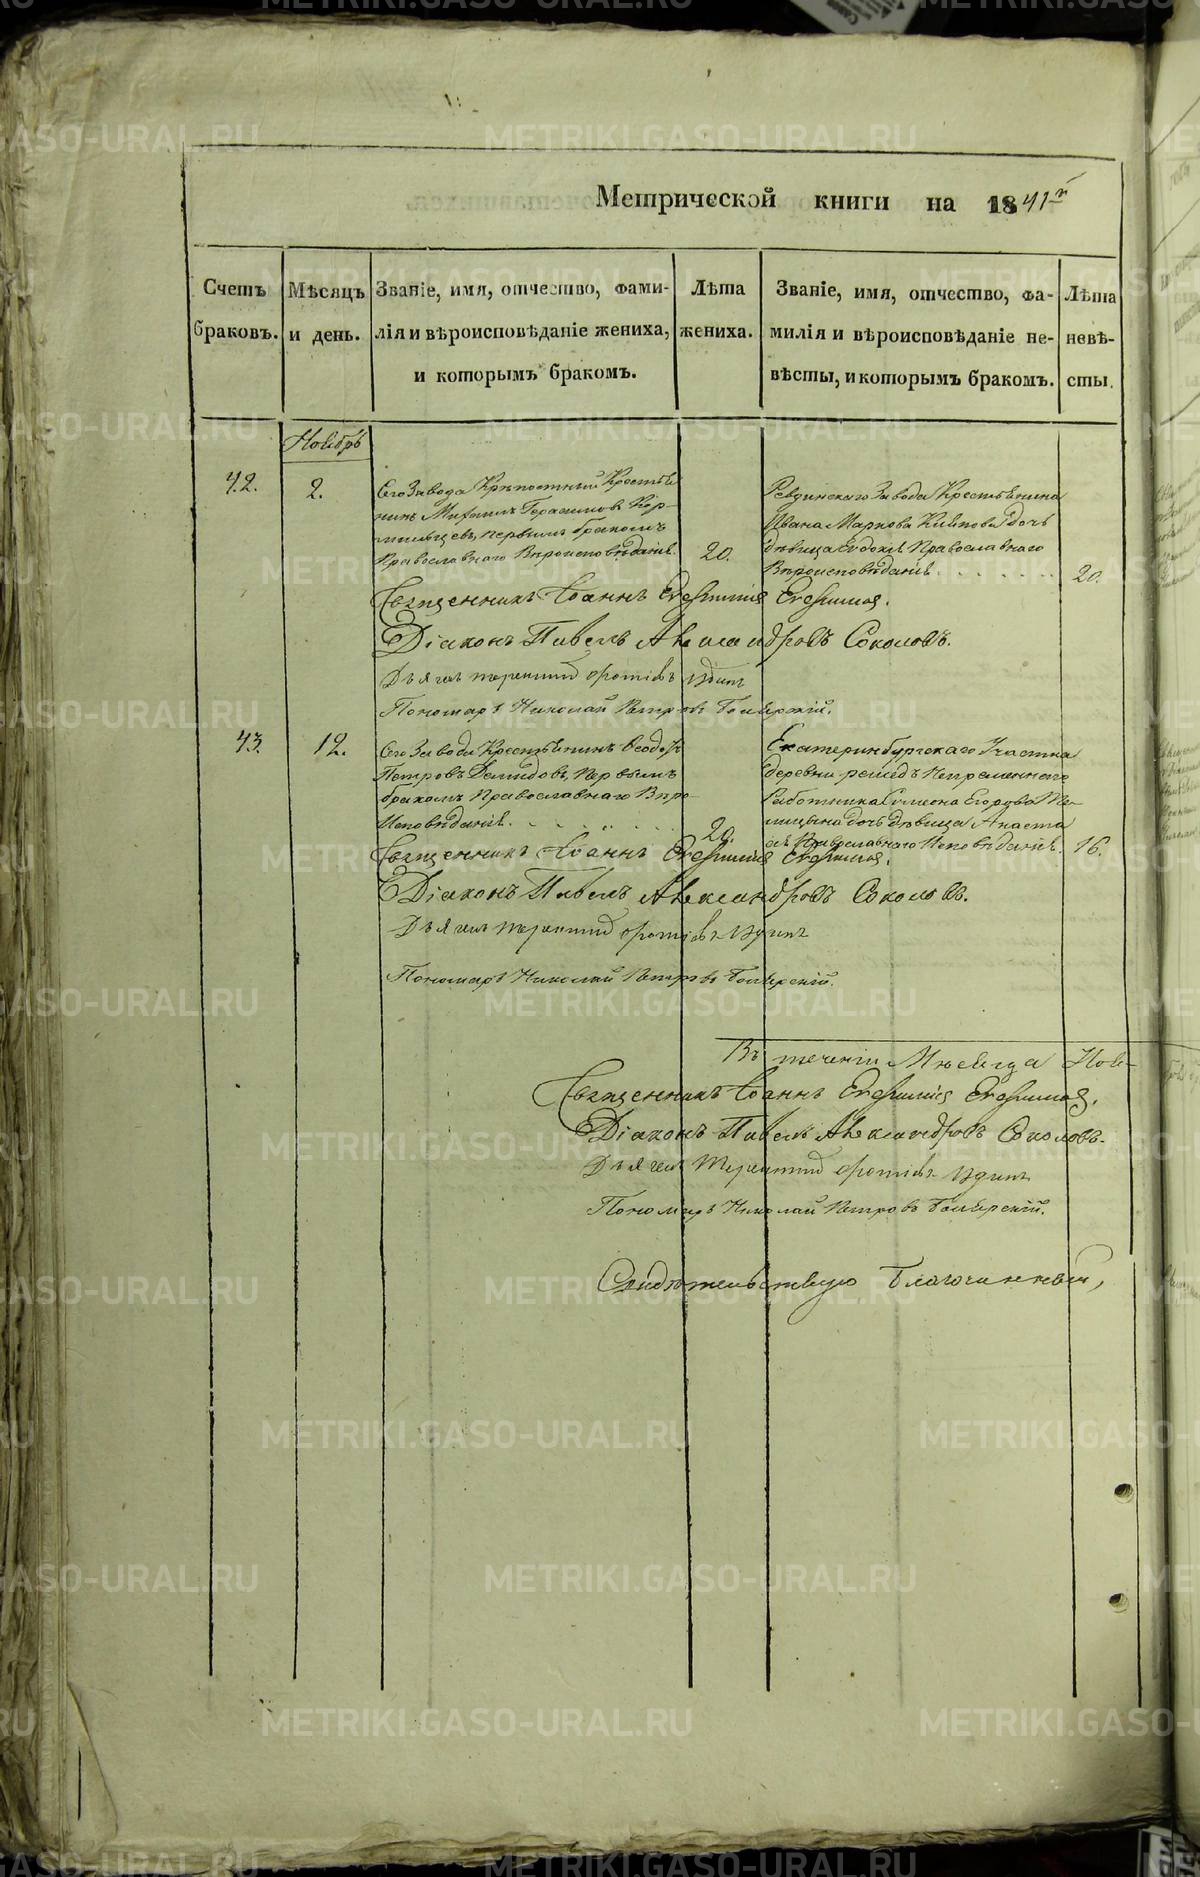 Метрической книги на 1841 г
Счетъ браковъ.
Мѣсяцъ и день.
Званіе, имя, отчество, фами-
лія и вѣроисповѣданіе жениха,
и которымъ бракомъ.
Лѣта
жениха.
Званіе, имя, отчество, фа-
милія и вѣроисповѣданіе не-
вѣсты, и которымъ бракомъ.
Лѣта
невѣ-
сты.
Ноябрь
42.
2.
Сего Завода Крѣпостный Крестья
нинъ Михаилъ Герасимовъ Кор-
первымъ бракомъ
Православнаго Вѣроисповѣданія.
20.
Ревдинскаго Завода Крестьянина
Ивана Маркова дочь
дѣвица Евдокія Православнаго
Вѣроисповѣданія
20.
Священникъ Іоаннъ
Діаконъ Павелъ Александровъ Соколовъ.
Дьячекъ Терентий
Пономарь Николай Петровъ
43.
12.
Сего Завода Крестьянинъ Ѳеодоръ
Петровъ Демидовъ, первымъ
бракомъ Православнаго Вѣро-
исповѣданія
20.
Екатеринбургскаго Участка
деревни Решедъ Непременнаго
Работника Симеона Егорова
дочь дѣвица Анаста
сія Православнаго Исповѣданія.
16.
Священникъ Іоаннъ
Діаконъ Павелъ Александровъ Соколовъ.
Дьячекъ Терентий
Пономарь Николай Петровъ
Въ теченіи Мѣсяца Ноя-
Священникъ Іоаннъ
Діаконъ Павелъ Александровъ Соколовъ.
Дьячекъ Терентий
Пономарь Николай Петровъ
Свидѣтельствую Благочинный,
METRIKI.GASO-URAL.RU